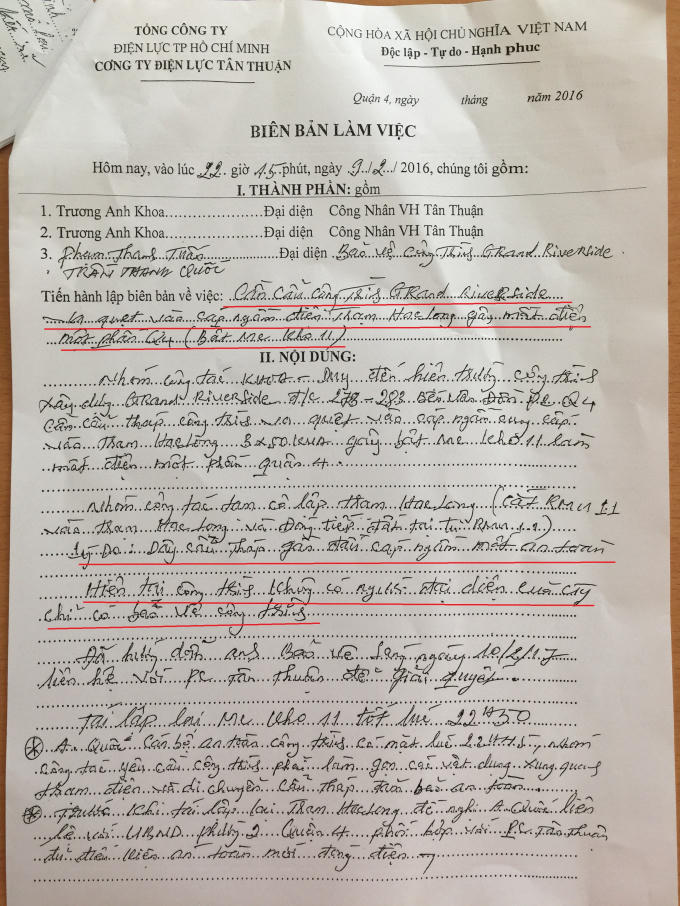 TỔNG CÔNG TY
ĐIỆN LỰC TP HỒ CHÍ MINH
CƠNG TY ĐIỆN LỰC TÂN THUẬN
CỘNG HÒA XÃ HỘI CHỦ NGHĨA VIỆT NAM
Độc lập - Tự do - Hạnh phuc
Quận 4, ngày tháng năm 2016
BIÊN BẢN LÀM VIỆC
Hôm nay, vào lúc 22 giờ 15 phút, ngày 9/2/ 2016, chúng tôi gồm:
I. THÀNH PHẦN: gồm
1. Trương Anh Khoa Đại diện Công Nhân VH Tân Thuận
2. Trương Anh Khoa Đại diện Công Nhân VH Tân Thuận
3. Phạm Thanh Tuấn Đại diện Bảo vệ Công Trường Grand Riverside
TRẦN THANH QUỐC
Tiến hành lập biên bản về việc: Cần Cẩu Công GRand RiveRside
quẹt vào cáp ngầm điện Trạm Hoclong gây mất điện
một phần Q4 (Bật MC Kho 11)
II. NỘI DUNG:
Nhóm công tác KHOA - đến hiện trường công
xây dựng GRand RiveRside 278 - 283 Bến Vân Đồn Q4
Cần cẩu tháp công quẹt vào cáp ngầm cung cấp
vào Trạm Hoclong gây bật MC Kho 11 làm
mất điện một phần quận 4
Nhóm công tác cô lập trạm Hoclong (Cắt RMU 11
vào trạm Hoclong và Đóng tiếp đất tại tủ RMU 1.1)
Lý Do: Dây cẩu tháp gần đầu cáp ngầm mất an toàn
Hiện tại công không có người đại diện của cty
chỉ có bảo vệ công
Đã hướng dẫn anh Bảo vệ sáng ngày 10/2/17
liên hệ với PC Tân Thuận để giải quyết
Tái lập lại MC Kho 11 tốt lúc 22H30
A. Quốc Cán bộ an toàn công có mặt lúc nhóm
công tác yêu cầu công phải làm gọn các vật dụng xung quanh
trạm điện và di chuyển cẩu tháp bảo an toàn
Trước khi tái lập lại Trạm Hoclong đề nghị A. Quốc liên
hệ với UBND phường 2 Quận 4 phối hợp với PC Tân Thuận
đủ điều kiện an toàn mới đóng điện